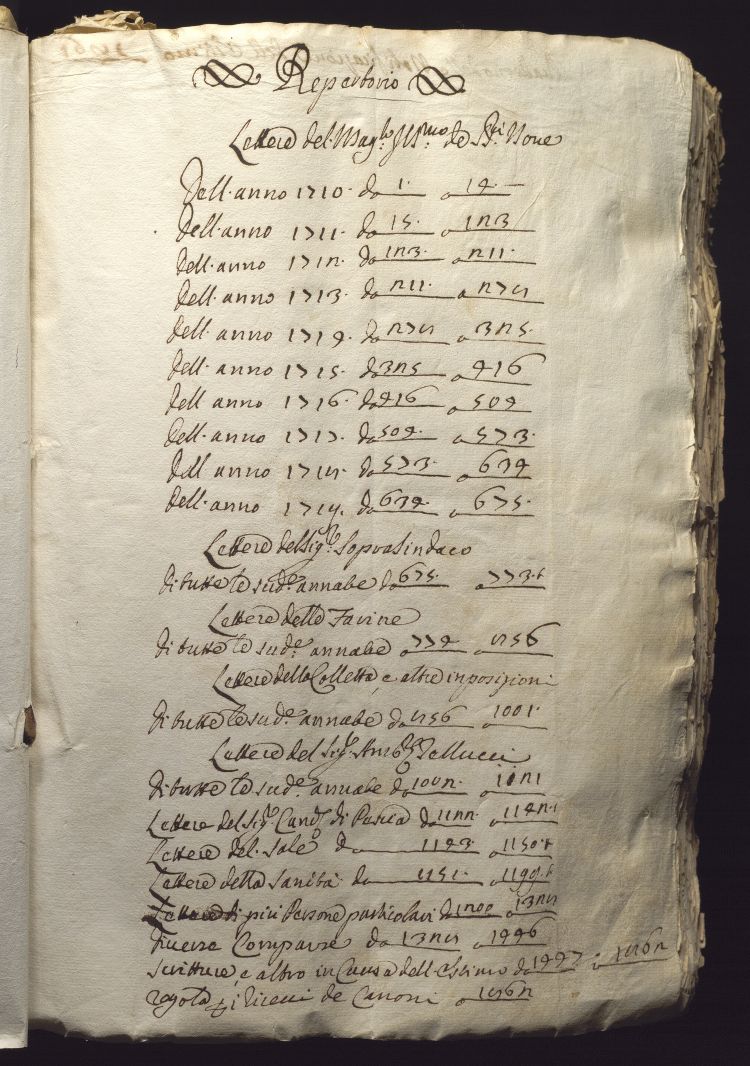 Repertorio
Lettere del Mag.to Ill.mo de SS.ri Nove
Dell'anno 1710. da 1. a 14.
Dell'anno 1711. da 15. a 123
Dell'anno 1712. da 123. a 211.
Dell'anno 1713. da 211. a 278
Dell'anno 1714. da 278 a 325.
Dell'anno 1715. da 325 a 416
Dell'anno 1716 da 416 a 504
Dell'anno 1717. da 504. a 573.
Dell'anno 1718. da 573. a 634
Dell'anno 1719. da 634. a 675.
Lettere del Sig.r Soprasindaco
di tutte le sud.e annate da 675. a 773.t
Lettere delle Farine
di tutte le sud.e annate a 774 a 856
Lettere della Colletta, e altre inposizioni
di tutte le sud.e annate da 856 a 1001.
Lettere del Sig.r
di tutte le sud.e annate da 1002. a 1121
Lettere del Sig.r Canc.re di Pescia da 1122. a 1142.t
Lettere del Sale da 1143. a 1150.t
Lettere della Sanità da 1151. a
Lettere di più Persone particolari da 1200 a 1328
diverse Comparse da 1328 a 1446
scritture, e altro in Causa dell'Estimo da 1447. a 1862
regola de Canoni a 1862